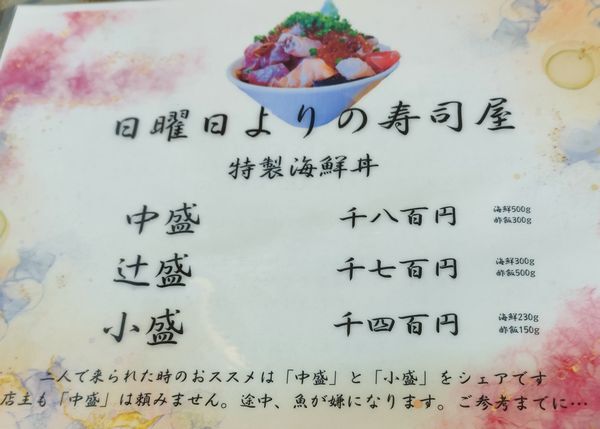 日曜日よりの寿司屋
特製海鮮丼
中盛 千八百円 海鮮500g
酢飯300g
辻盛 千七百円 海鮮300g
酢飯500g
小盛 千四百円 海鮮230g
酢飯150g
二人で来られた時のおススメは「中盛」と「小盛」をシェアです
店主も「中盛」は頼みません。途中、魚が嫌になります。ご参考までに…